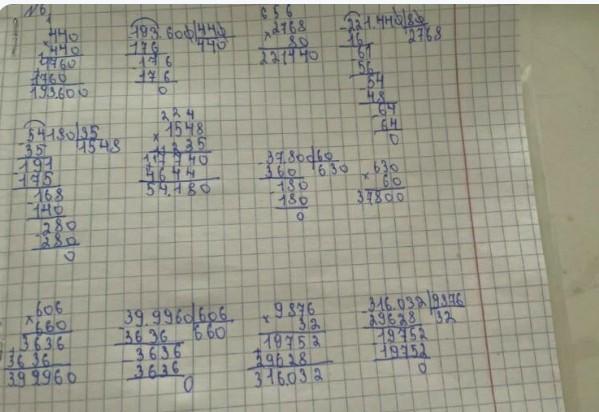 №6
1
440
× 440
1760
1760
193.600
-193.600 | 440
176 440
- 176
176
0
656
× 2768
80
221440
-221.440 | 80
16 2768
-61
56
-54
48
-64
64
0
-54180 | 35
35 1548
-191
175
-168
140
-280
280
0
224
× 1548
35
7740
4644
54.180
-37800 | 60
360 630
-180
180
0
× 630
60
37800
× 606
660
3636
3636
399960
39.9960 | 606
3636 660
3636
3636
0
× 9876
32
19752
29628
316032
-316.032 | 9876
29628 32
-19752
19752
0